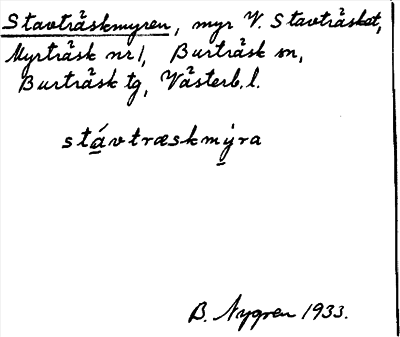 Stavträskmyren, myr V. Stavträsket,
Myrträsk nr 1, Burträsk sn,
Burträsk tg, Västerb. l.
stávtræskmýra
B. Nygren 1933.